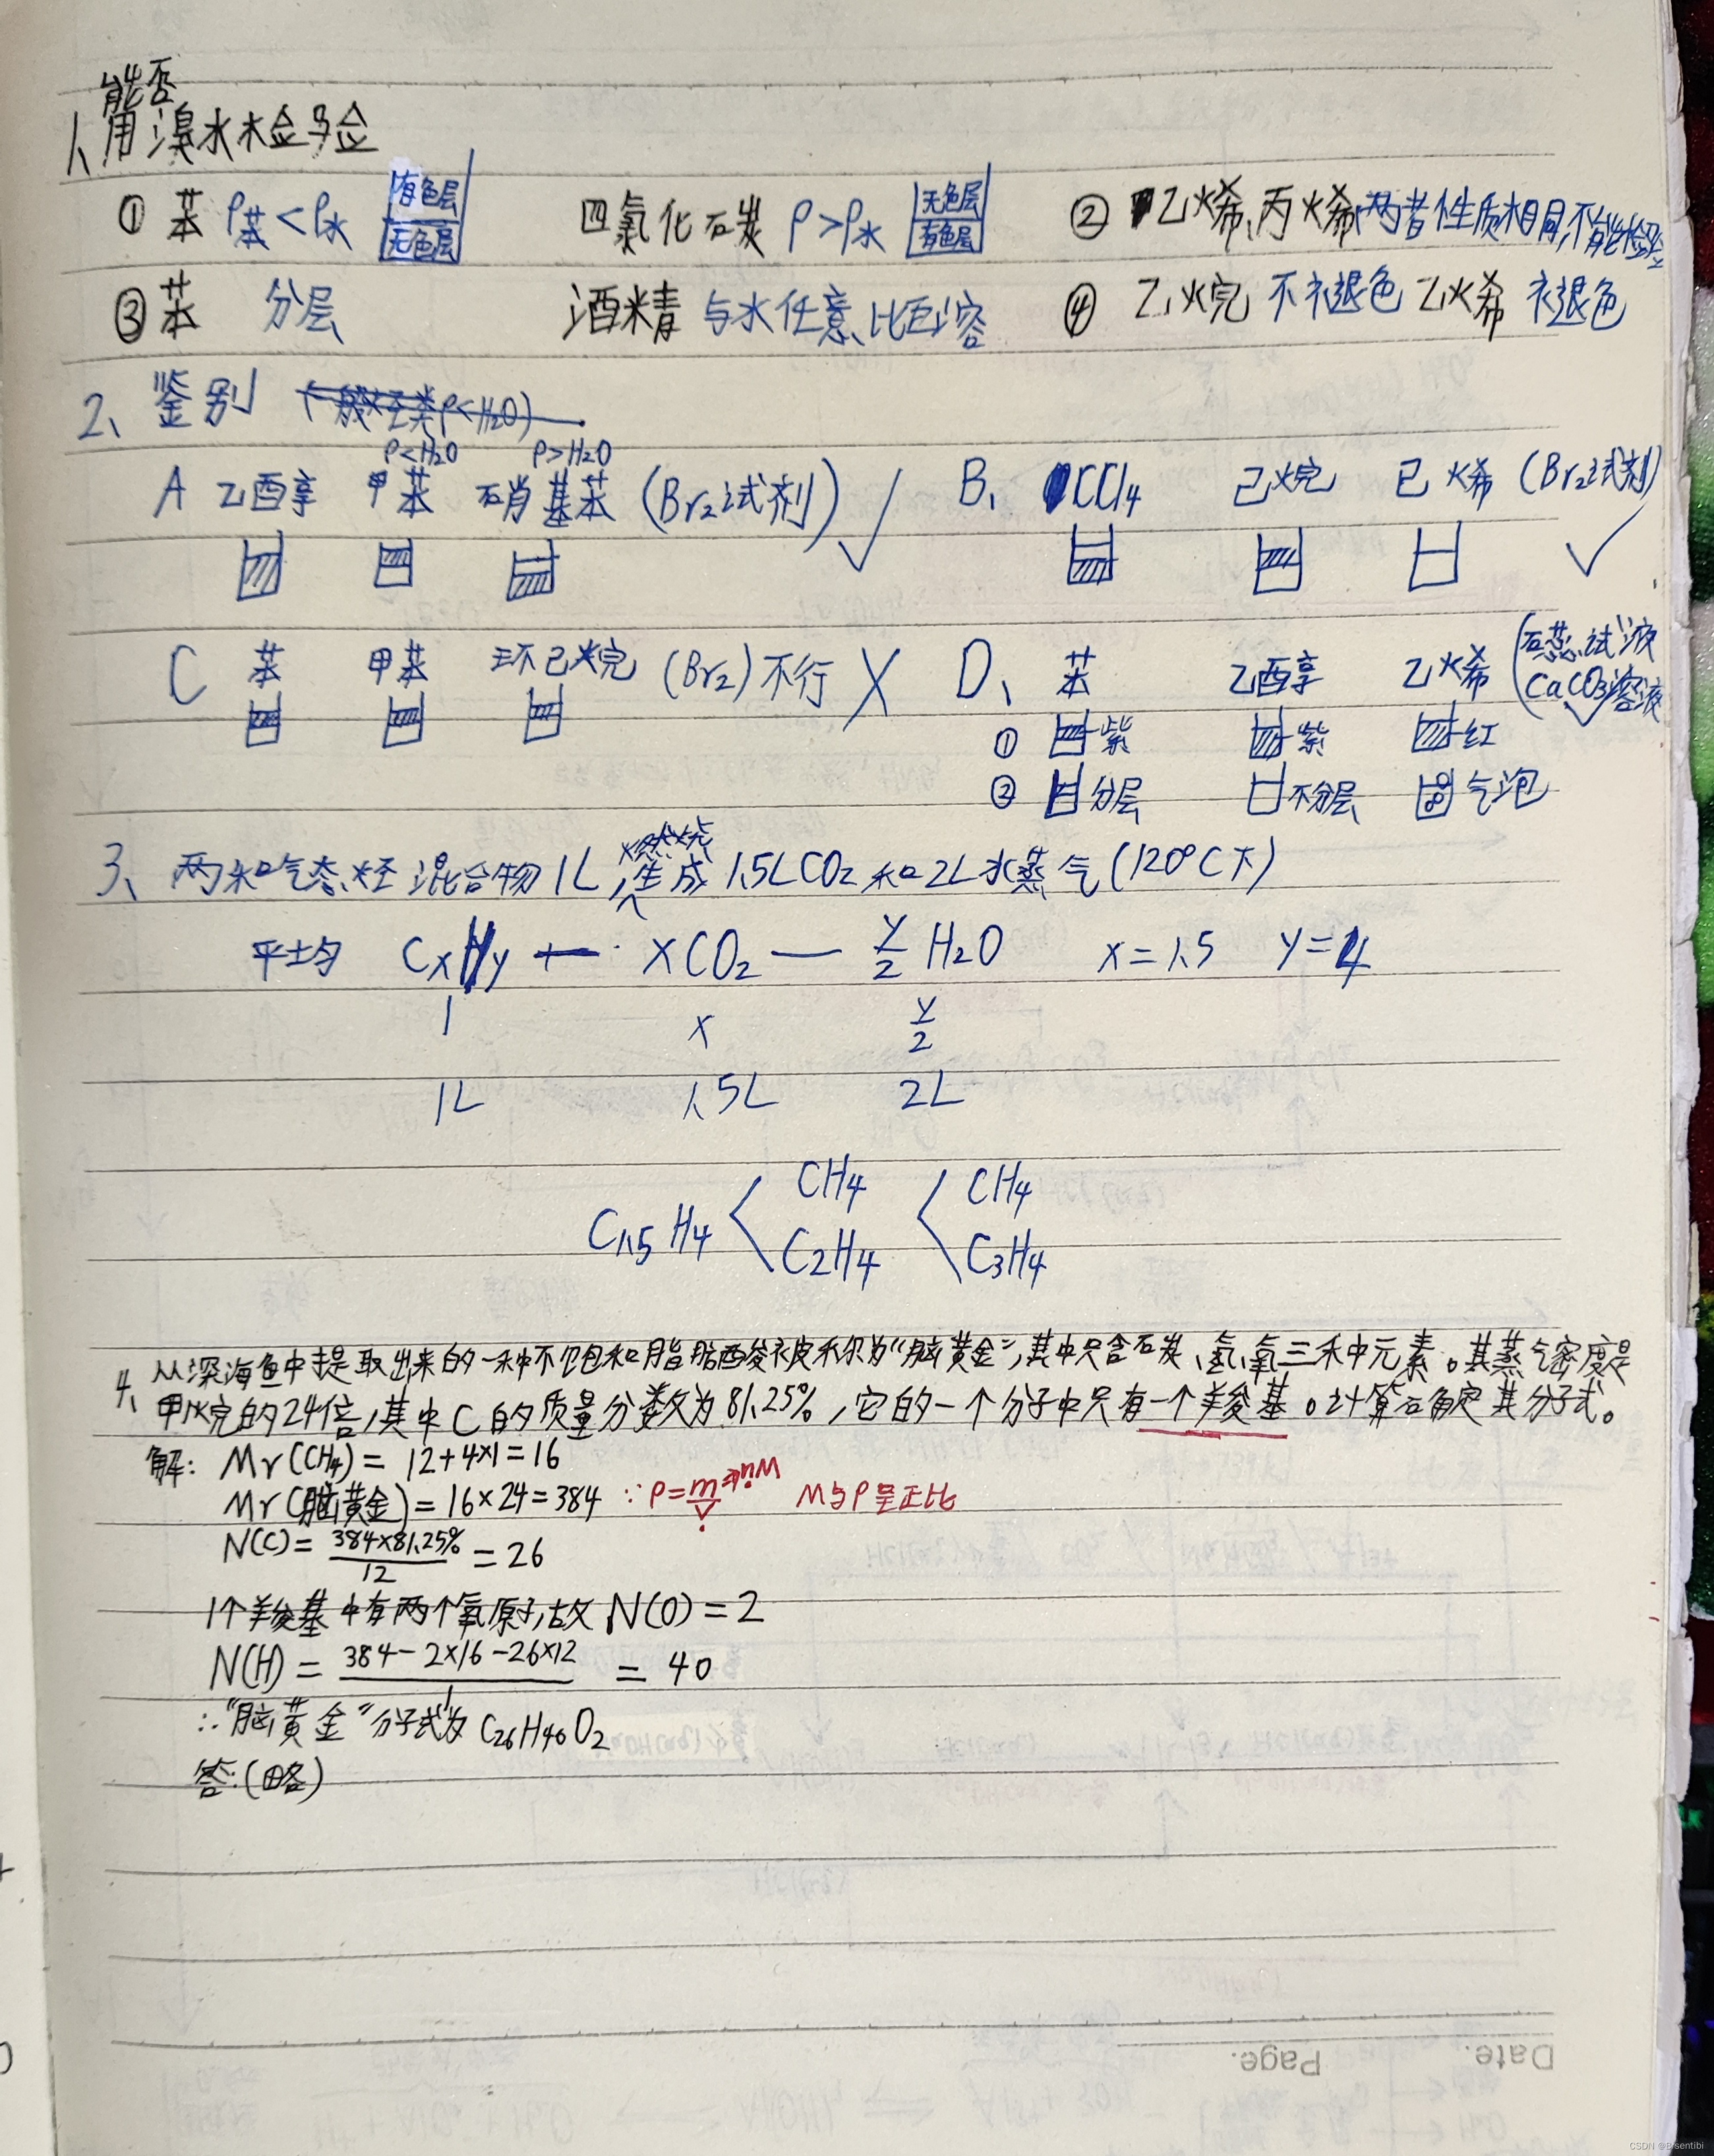 能否
1、用溴水检验
① 苯 ρ苯<ρ水 有色层 无色层 四氯化碳 ρ>ρ水 无色层 有色层 ② 乙烯、丙烯 两者性质相同,不能检验
③ 苯 分层 酒精 与水任意比互溶 ④ 乙烷 不褪色 乙烯 褪色
2、鉴别 (一般烃类ρ<H₂O)
ρ<H₂O ρ>H₂O
A 乙醇 甲苯 硝基苯 (Br₂试剂) ✓ B、 CCl₄ 己烷 己烯 (Br₂试剂) ✓
C 苯 甲苯 环己烷 (Br₂) 不行 X D、 苯 乙醇 乙烯 (石蕊试液 CaCO₃溶液 ✓
① 紫 紫 红
② 分层 不分层 气泡
3、两种气态烃混合物1L,燃烧生成1.5LCO₂和2L水蒸气(120°C下)
平均 CxHy — xCO₂ — y/2 H₂O x=1.5 y=4
1 x y/2
1L 1.5L 2L
CH₄ CH₄
C1.5H₄ < <
C₂H₄ C₃H₄
4、从深海鱼中提取出来的一种不饱和脂肪酸被称为“脑黄金”,其中只含碳、氢、氧三种元素。其蒸气密度是
甲烷的24倍,其中C的质量分数为81.25%,它的一个分子中只有一个羧基。计算确定其分子式。
解: Mr(CH₄)= 12+4×1=16
Mr(脑黄金)=16×24=384 ∵ρ=m/V M与ρ呈正比
N(C)= 384×81.25%/12 =26
1个羧基中有两个氧原子,故N(O)=2
N(H)= 384-2×16-26×12/1 = 40
∴“脑黄金”分子式为C₂₆H₄₀O₂
答:(略)
Date. Page.
CSDN @Bisentibi